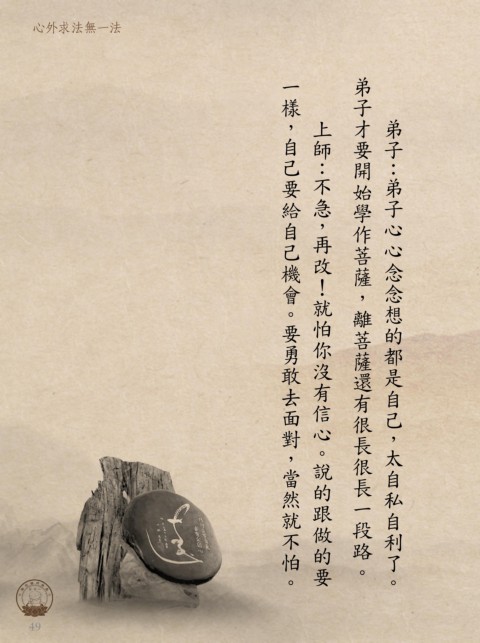 心外求法無一法
弟子：弟子心心念念想的都是自己，太自私自利了。
弟子才要開始學作菩薩，離菩薩還有很長很長一段路。
上師：不急，再改！就怕你沒有信心。說的跟做的要
一樣，自己要給自己機會。要勇敢去面對，當然就不怕。
49